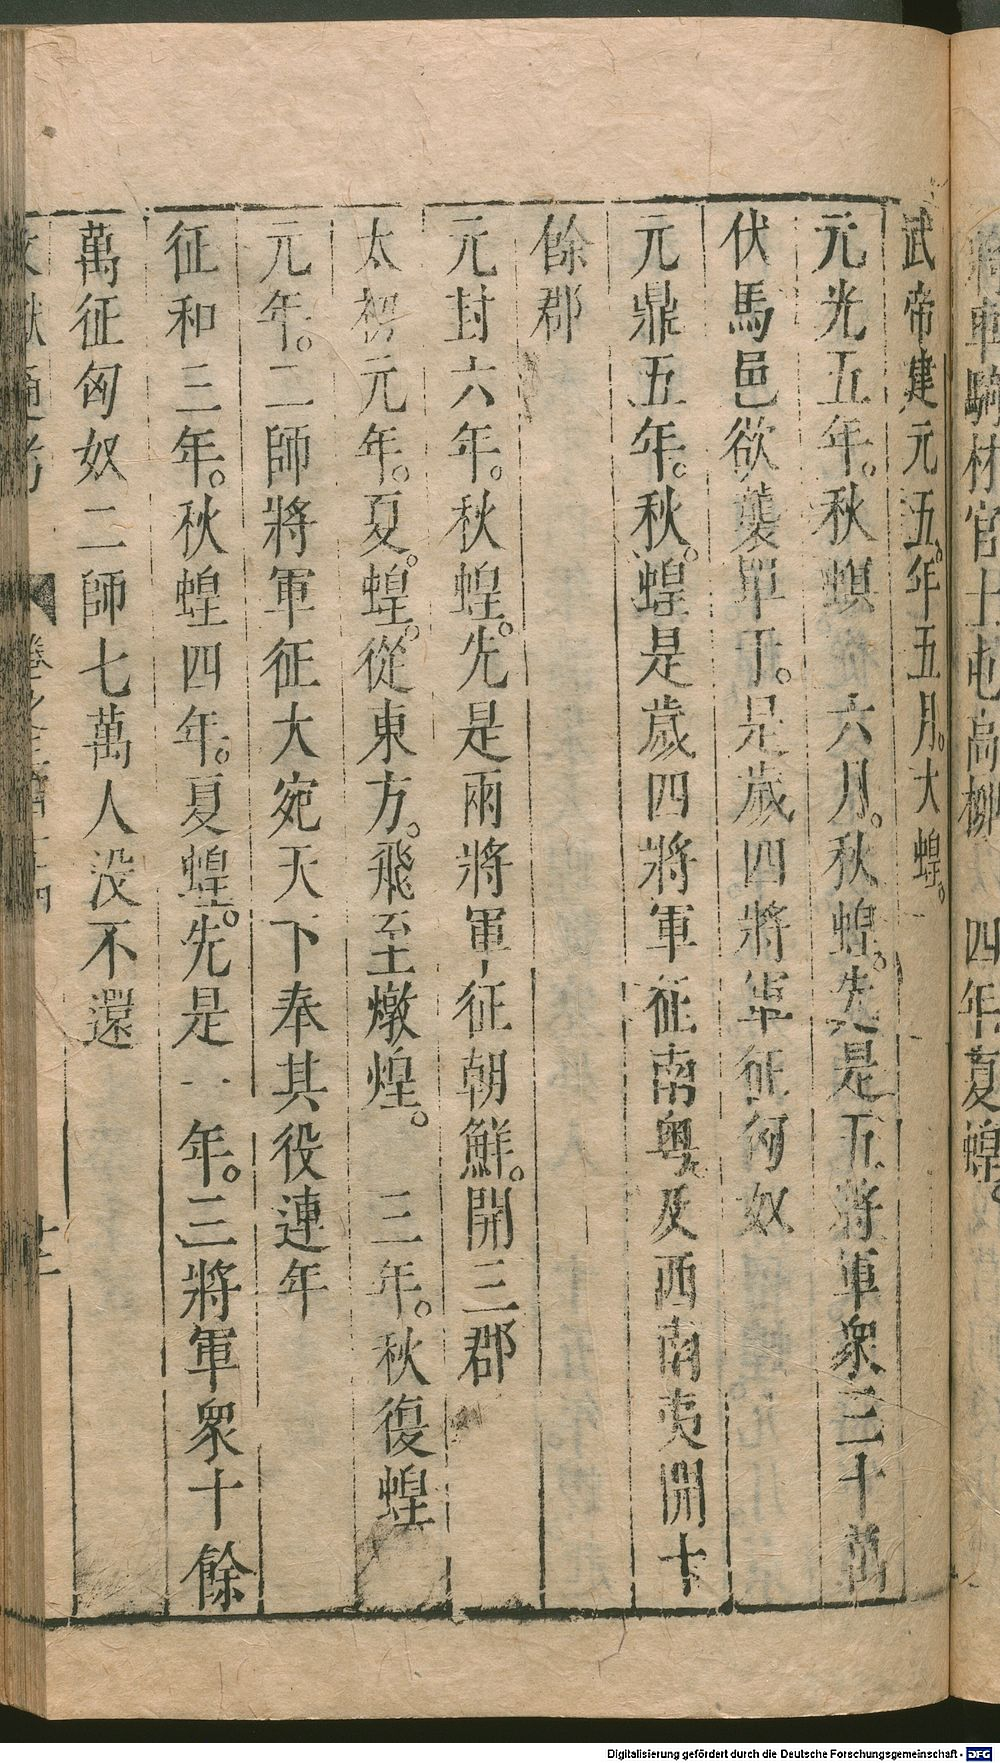 將車騎材官士屯高柳　四年夏蝗。
武帝建元五。年五月。大蝗。
元光五年。秋螟　六月。秋蝗。先是五將軍衆三十萬
伏馬邑欲襲單于。是歲四將軍征匈奴
元鼎五年。秋。蝗是歲四將軍征南粵及西南夷開十
餘郡
元封六年。秋蝗。先是兩將軍征朝鮮。開三郡
太初元年。夏。蝗。從東方。飛至燉煌。　三年。秋復蝗
元年。二師將軍征大宛天下奉其役連年
征和三年。秋蝗四年。夏蝗。先是一年。三將軍衆十餘
萬征匈奴二師七萬人没不還
文獻通考　卷之三百十四　十二
Digitalisierung gefördert durch die Deutsche Forschungsgemeinschaft - DFG